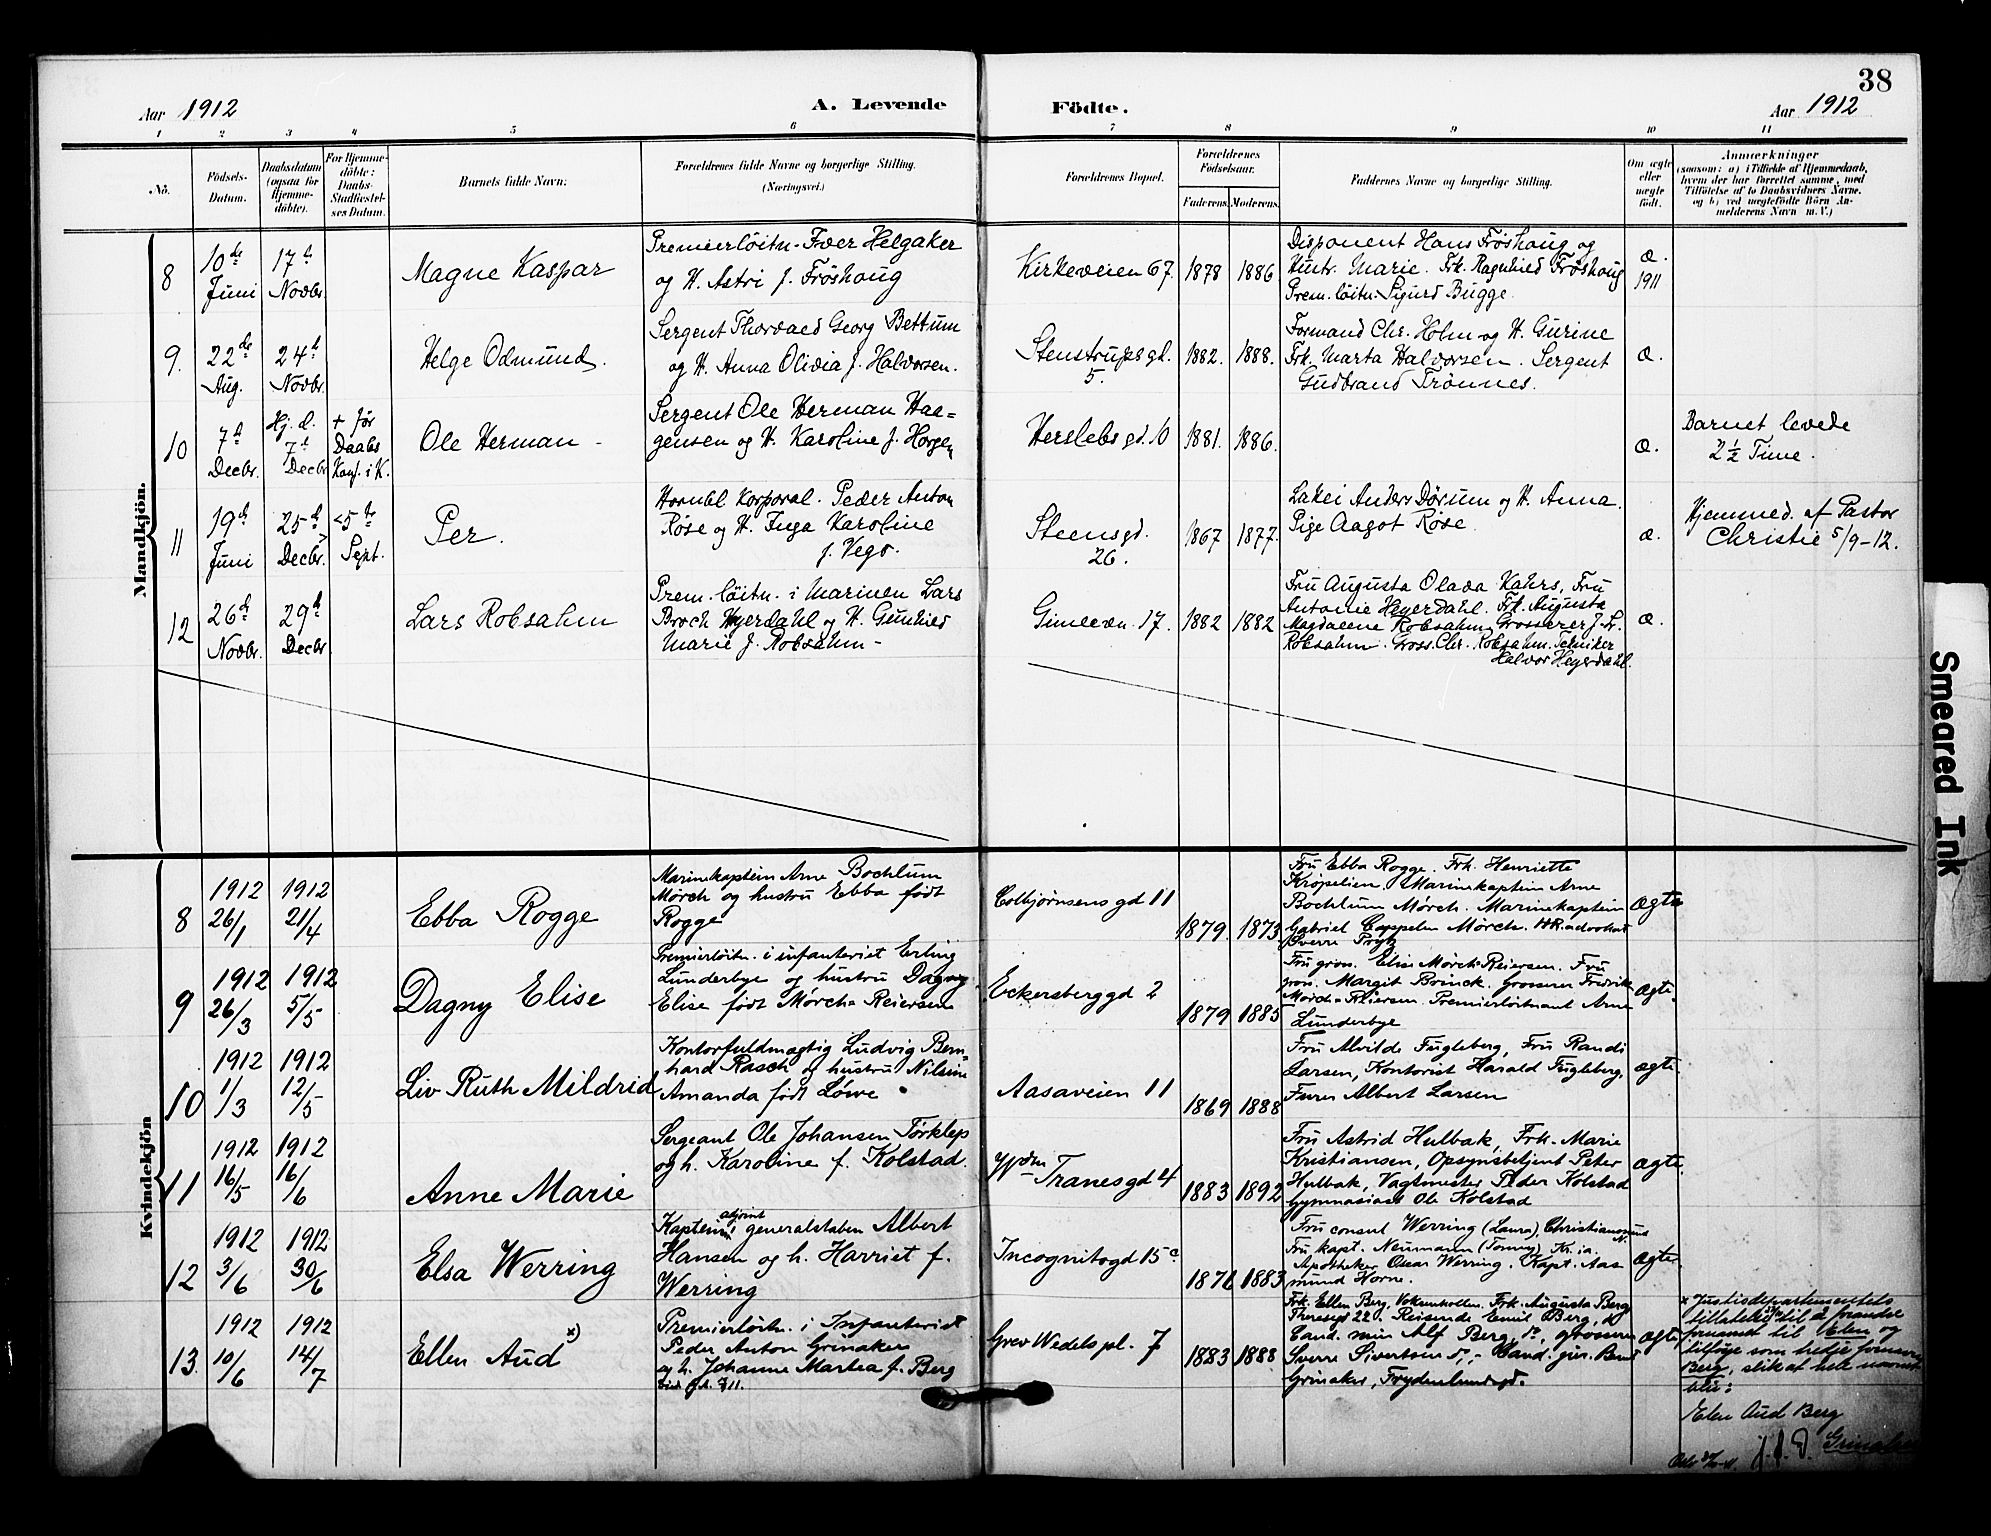 38
Aar 1912
A. Levende
Födte.
Aar 1912
1 2 3 4 5 6 7 8 9 10 11
No.
Födsels-
Datum.
Daabsdatum
(ogsaa for
Hjemme-
döbte).
For Hjemme-
döbte:
Daabs-
Stadfæstel-
ses Datum.
Barnets fulde Navn.
Forældrenes fulde Navne og borgerlige Stilling.
(Næringsvei.)
Forældrenes Bopæl.
Forældrenes
Födselsaar.
Faderens. Moderens.
Faddernes Navne og borgerlige Stilling.
Om ægte
eller
uægte
födt.
Anmærkninger
(saasom: a) i Tilfælde af Hjemmedaab,
hvem der har forrettet samme, med
Tilföielse af to Daabsvidners Navne,
og b) ved uægtefödte Börn An-
melderens Navn m. V.)
Mandkjön.
8
10de
Juni
17d
Novbr.
Magne Kaspar
Premierlöitn. Iver Helgaker
og H. Astri f. Fröshaug
Kirkeveien 67.
1878
1886
Disponent Hans Fröshaug og
Hustr. Marie. Frk. Ragnhild Fröshaug
Prem. löitn. Sigurd Bugge.
æ.
1911
9.
22de
Aug.
24d
Novbr.
Helge Odmund.
Sergent Thorvald Georg Bettum
og H. Anna Olivia f. Halvorsen.
Stenstrupsgd.
5.
1882.
1888.
Formand Chr. Holm og H. Gurine
Frk. Marta Halvorsen. Sergent
Gudbrand Trönnes.
æ.
10
7d
Decbr.
Hj. d.
7d
Decbr
+ før
Daabs
Kanf. i K.
Ole Herman -
Sergent Ole Herman Haa-
gensen og H. Karoline f. Horgen
Herslebsgd. 10
1881.
1886.
æ.
Barnet levede
2 1/2 Time.
11
19d
Juni
25d
Decbr.
<5te
Sept.
Per.
Hornbl. Korporal. Peder Anton
Röse og H. Inga Karoline
f. Vego.
Steensgd.
26.
1867
1877.
Lakei Anders Dörum og H. Anna.
Pige Aagot Röse.
æ.
Hjemmed. af Pastor
Christie 5/9-12.
12
26d
Novbr.
29d
Decbr.
Lars Robsahm
Prem. löitn. i Marinen Lars
Broch Heyerdahl og H. Gunhild
Marie f. Robsahm-
Gimlevn. 17.
1882
1882
Fru Augusta Olava Kahrs, Fru
Antonie Heyerdahl. Frk. Augusta
Magdalene Robsahm, Grosserer J. Fr.
Robsahm. Gross. Chr. Robsahm. Tekniker
Halvor Heyerdahl.
æ.
Kvindekjön
8
1912
26/1
1912
21/4
Ebba Rogge
Marinekaptein Arne Bochlum
Mørch og hustru Ebba født
Rogge
Colbjørnsens gd 11
1879.
1873.
Fru Ebba Rogge. Frk. Henriette
Krøpelien, Marinekaptein Arne
Bochlum Mørch. Marinekaptein
Gabriel Cappelen Mørch. HR.advokat
Sverre Prytz
ægte
9
1912
26/3
1912
5/5
Dagny Elise
Premierløitn. i infanteriet Erling
Lunderbye og hustru Dagny
Elise født Mørch-Reiersen
Eckersberggd 2
1879
1885
Fru gros. Elise Mørch-Reiersen. Fru
gros. Margit Brinck. grosserer Fredrik
Mørch-Reiersen. Premierløitnant Arne
Lunderbye
ægte.
10
1912
1/3
1912
12/5
Liv Ruth Mildrid
Kontorfuldmægtig Ludvig Bern-
hard Rasch og hustru Nilsine
Amanda født Løwe
Aasaveien 11
1869
1888
Fru Alvilde Fugleberg, Fru Randi
Larsen, Kontorist Harald Fugleberg,
Furer Albert Larsen
ægte
11
1912
16/5
1912
16/6
Anne Marie
Sergeant Ole Johansen Törklep
og h. Karoline f. Kolstad.
Tranesgd 4
1883
1892
Fru Astrid Hulbak, Frk. Marie
Kristiansen, Opsynsbetjent Peter
Hulbak, Vagtmester Peder Kolstad
Gymnasiast Ole Kolstad
ægte.
12
1912
3/6
1912
30/6
Elsa Werring
Kaptein, adjoint i generalstaben Albert
Hansen og h. Harriet f.
Werring
Incognitogd 15c
1883
Fru consul Werring (Laura), Christianssund N.
Fru kapt. Neumann (Tonny) Kr.ia.
Apotheker Oscar Werring. Kapt. Aas
mund Horne.
ægte
13
1912
10/6
1912
14/7
Ellen Aud x)
Premierløitn. i Infanteriet
Peder Anton Grinaker
og h. Johanne Martha f. Berg
Grev Wedels pl. 7
1883
1888
Frk. Ellen Berg, Voksenkollen. Frk. Augusta Berg
Theresesg 22. Reisende Emil Berg, do
Cand. min Alf Berg, do, grosserer
Sverre Sivertsen do,- Cand. jur. Bernt
Grinaker, Frydenlundsgd.
ægte
x Justisdepartementets
tillatelse til å forandre
fornavnet til Elen og
tilføye som tredje fornavn
Berg, slik at hele navnet
blir:
Elen Aud Berg
Grinaker
Smeared Ink